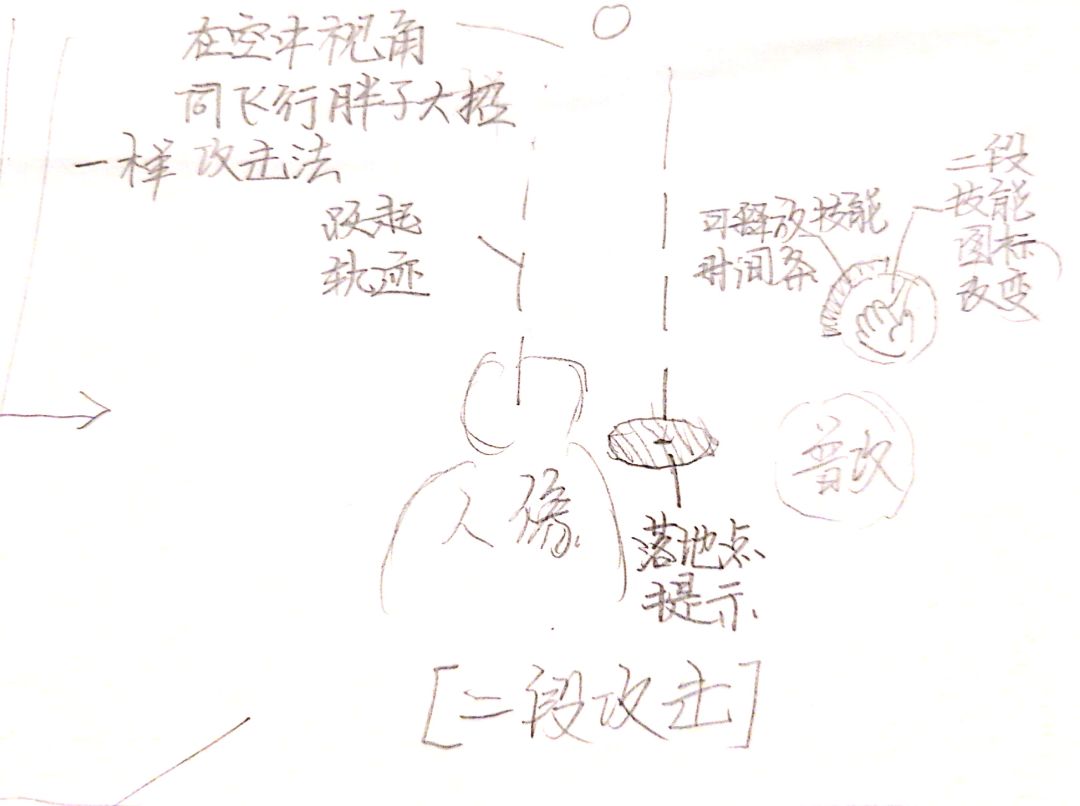 在空中视角
同飞行胖子大招
一样攻击法
跃起
轨迹
可释放技能
时间条
二段
技能
图标
改变
普攻
人像
落地点
提示
[二段攻击]